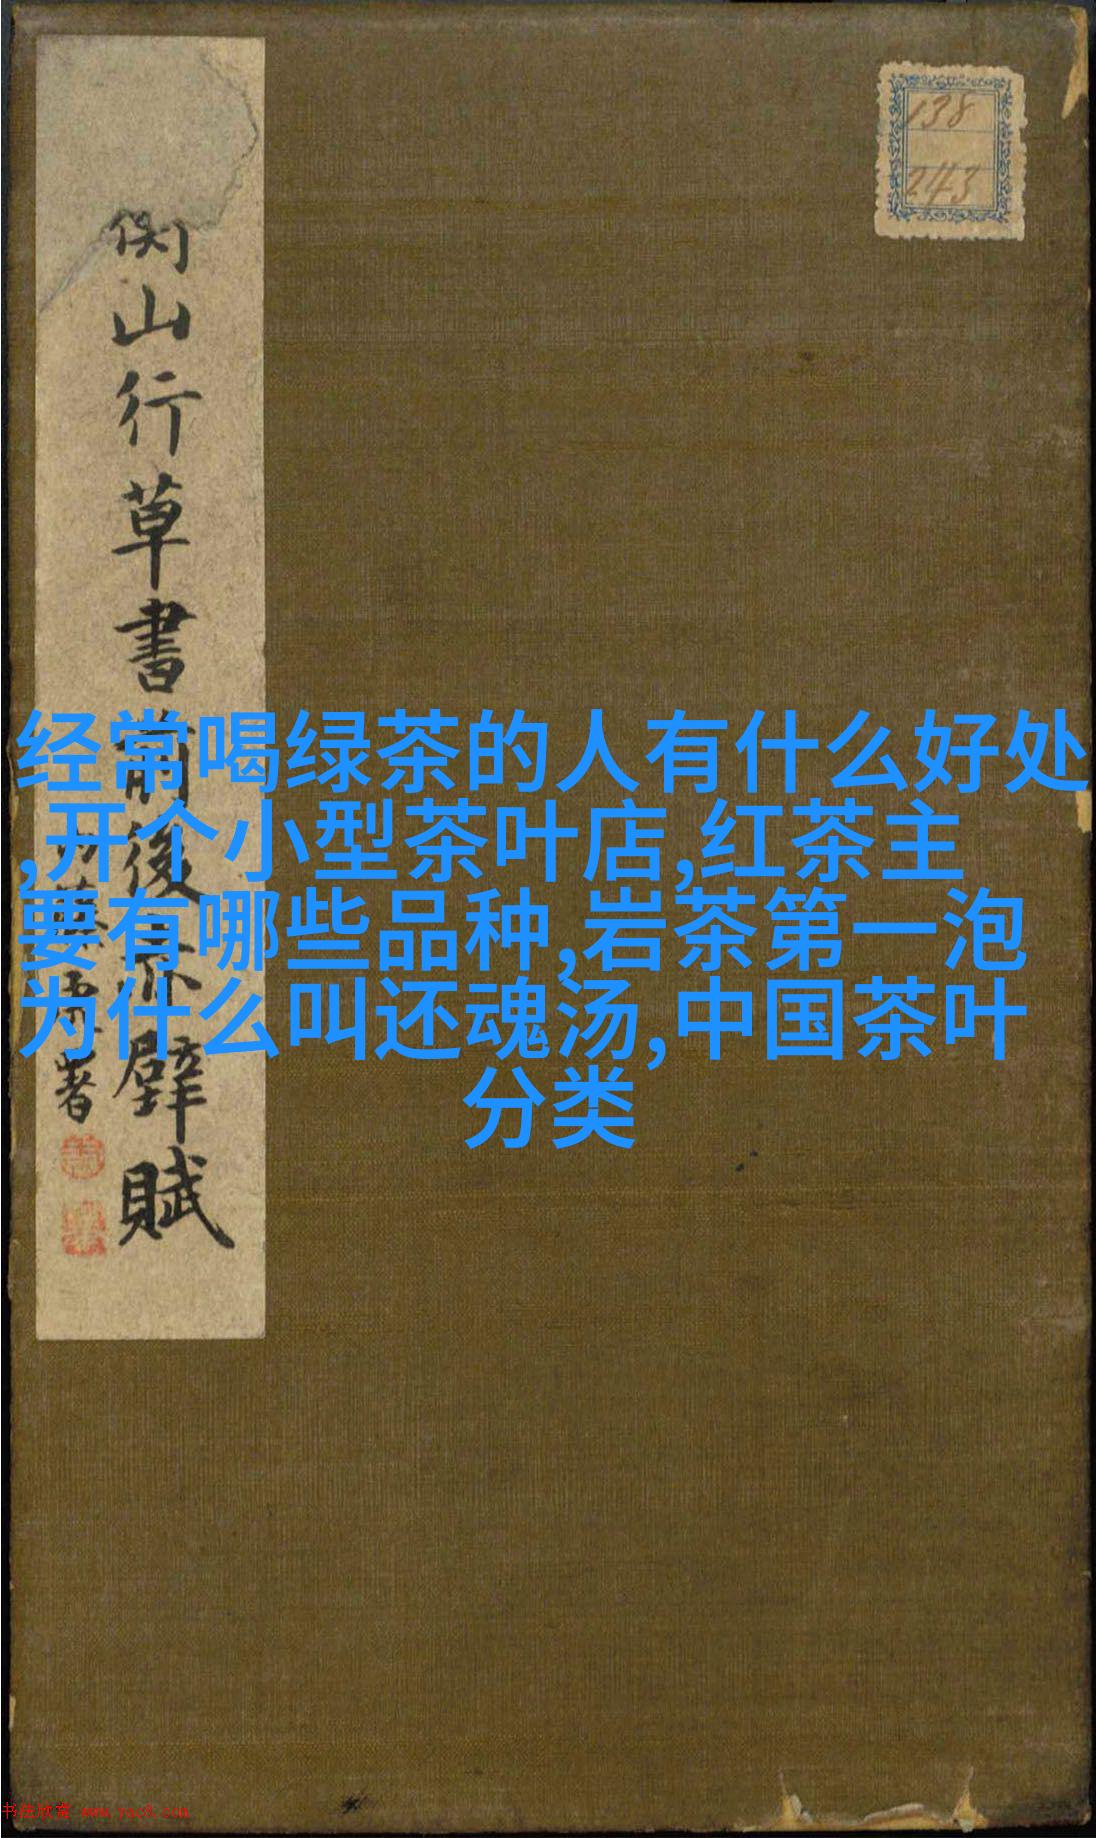 138
243
山行草書前後赤壁賦
署
经常喝绿茶的人有什么好处
,开个小型茶叶店,红茶主
要有哪些品种,岩茶第一泡
为什么叫还魂汤,中国茶叶
分类
书法欣赏 www.yac8.com